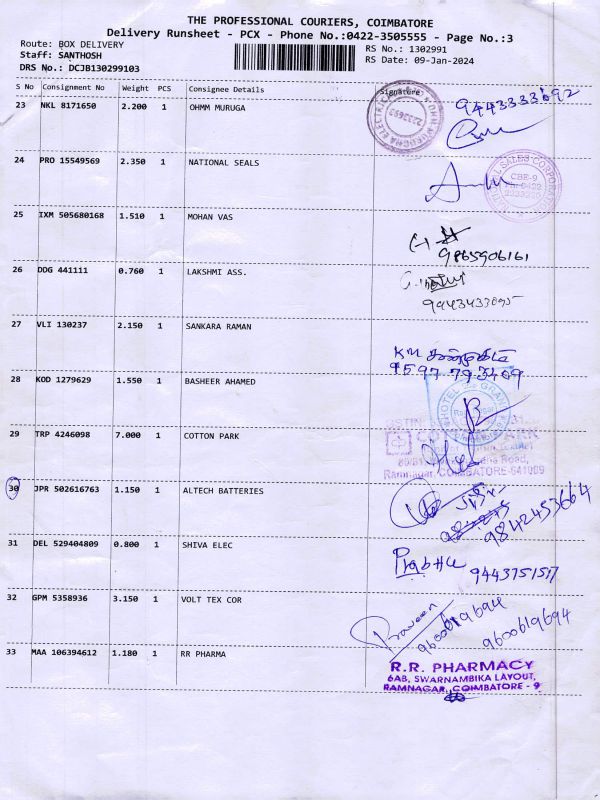 THE PROFESSIONAL COURIERS, COIMBATORE
Delivery Runsheet - PCX - Phone No.:0422-3505555 - Page No.:3
Route: BOX DELIVERY
RS No.: 1302991
Staff: SANTHOSH
RS Date: 09-Jan-2024
DRS No.: DCJB130299103
S No Consignment No Weight PCS Consignee Details Signature
23 NKL 8171650 2.200 1 OHMM MURUGA
9443333692
24 PRO 15549569 2.350 1 NATIONAL SEALS
CBE-9
25 IXM 505680168 1.510 1 MOHAN VAS
9865906161
26 DDG 441111 0.760 1 LAKSHMI ASS.
27 VLI 130237 2.150 1 SANKARA RAMAN
KM சண்முகம்
9597 793409
28 KOD 1279629 1.550 1 BASHEER AHAMED
HOTEL THE GRAND
29 TRP 4246098 7.000 1 COTTON PARK
Ramnagar, COIMBATORE-641009
30 JPR 502616763 1.150 1 ALTECH BATTERIES
9842453664
31 DEL 529404809 0.800 1 SHIVA ELEC
Prabhu
9443751517
32 GPM 5358936 3.150 1 VOLT TEX COR
Praveen
9600619694
9600619694
33 MAA 106394612 1.180 1 RR PHARMA
R.R. PHARMACY
6AB, SWARNAMBIKA LAYOUT,
RAMNAGAR, COIMBATORE - 9